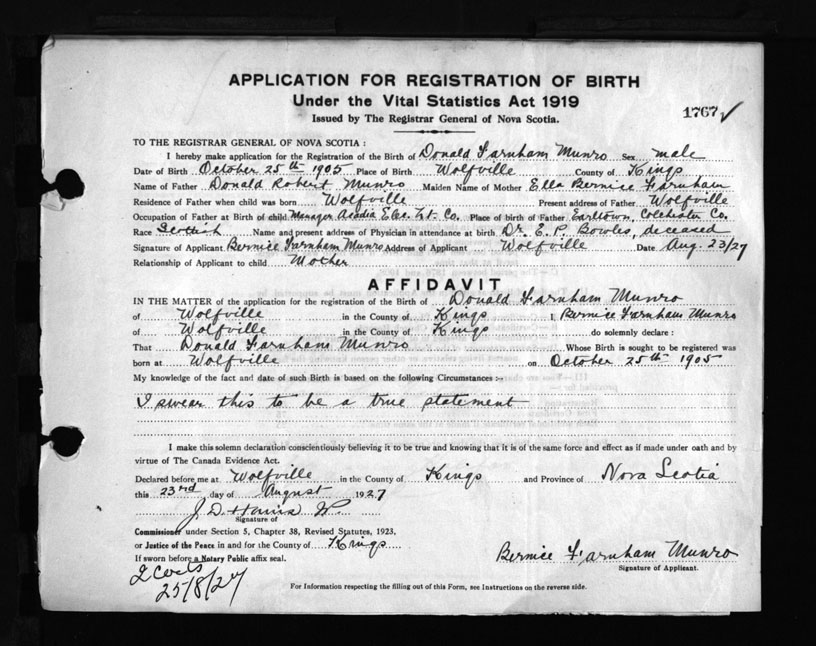 APPLICATION FOR REGISTRATION OF BIRTH
Under the Vital Statistics Act 1919
Issued by The Registrar General of Nova Scotia.
1767
TO THE REGISTRAR GENERAL OF NOVA SCOTIA :
I hereby make application for the Registration of the Birth of Donald Farnham Munro Sex male
Date of Birth October 25th 1905 Place of Birth Wolfville County of Kings
Name of Father Donald Robert Munro Maiden Name of Mother Ella Bernice Farnham
Residence of Father when child was born Wolfville Present address of Father Wolfville
Occupation of Father at Birth of child Manager Acadia Elec. Lt. Co. Place of birth of Father Earltown, Colchester Co.
Race Scottish Name and present address of Physician in attendance at birth Dr. E. P. Bowles, deceased
Signature of Applicant Bernice Farnham Munro Address of Applicant Wolfville Date Aug. 23/27
Relationship of Applicant to child Mother
AFFIDAVIT
IN THE MATTER of the application for the registration of the Birth of Donald Farnham Munro
of Wolfville in the County of Kings I, Bernice Farnham Munro
of Wolfville in the County of Kings do solemnly declare :
That Donald Farnham Munro Whose Birth is sought to be registered was
born at Wolfville on October 25th 1905
My knowledge of the fact and date of such Birth is based on the following Circumstances :-
I swear this to be a true statement
I make this solemn declaration conscientiously believing it to be true and knowing that it is of the same force and effect as if made under oath and by
virtue of The Canada Evidence Act.
Declared before me at Wolfville in the County of Kings and Province of Nova Scotia
this 23rd day of August 1927
J. D. Harris
Signature of
Commissioner under Section 5, Chapter 38, Revised Statutes, 1923,
or Justice of the Peace in and for the County of Kings
If sworn before a Notary Public affix seal.
Bernice Farnham Munro
Signature of Applicant.
25/8/27
For Information respecting the filling out of this Form, see Instructions on the reverse side.